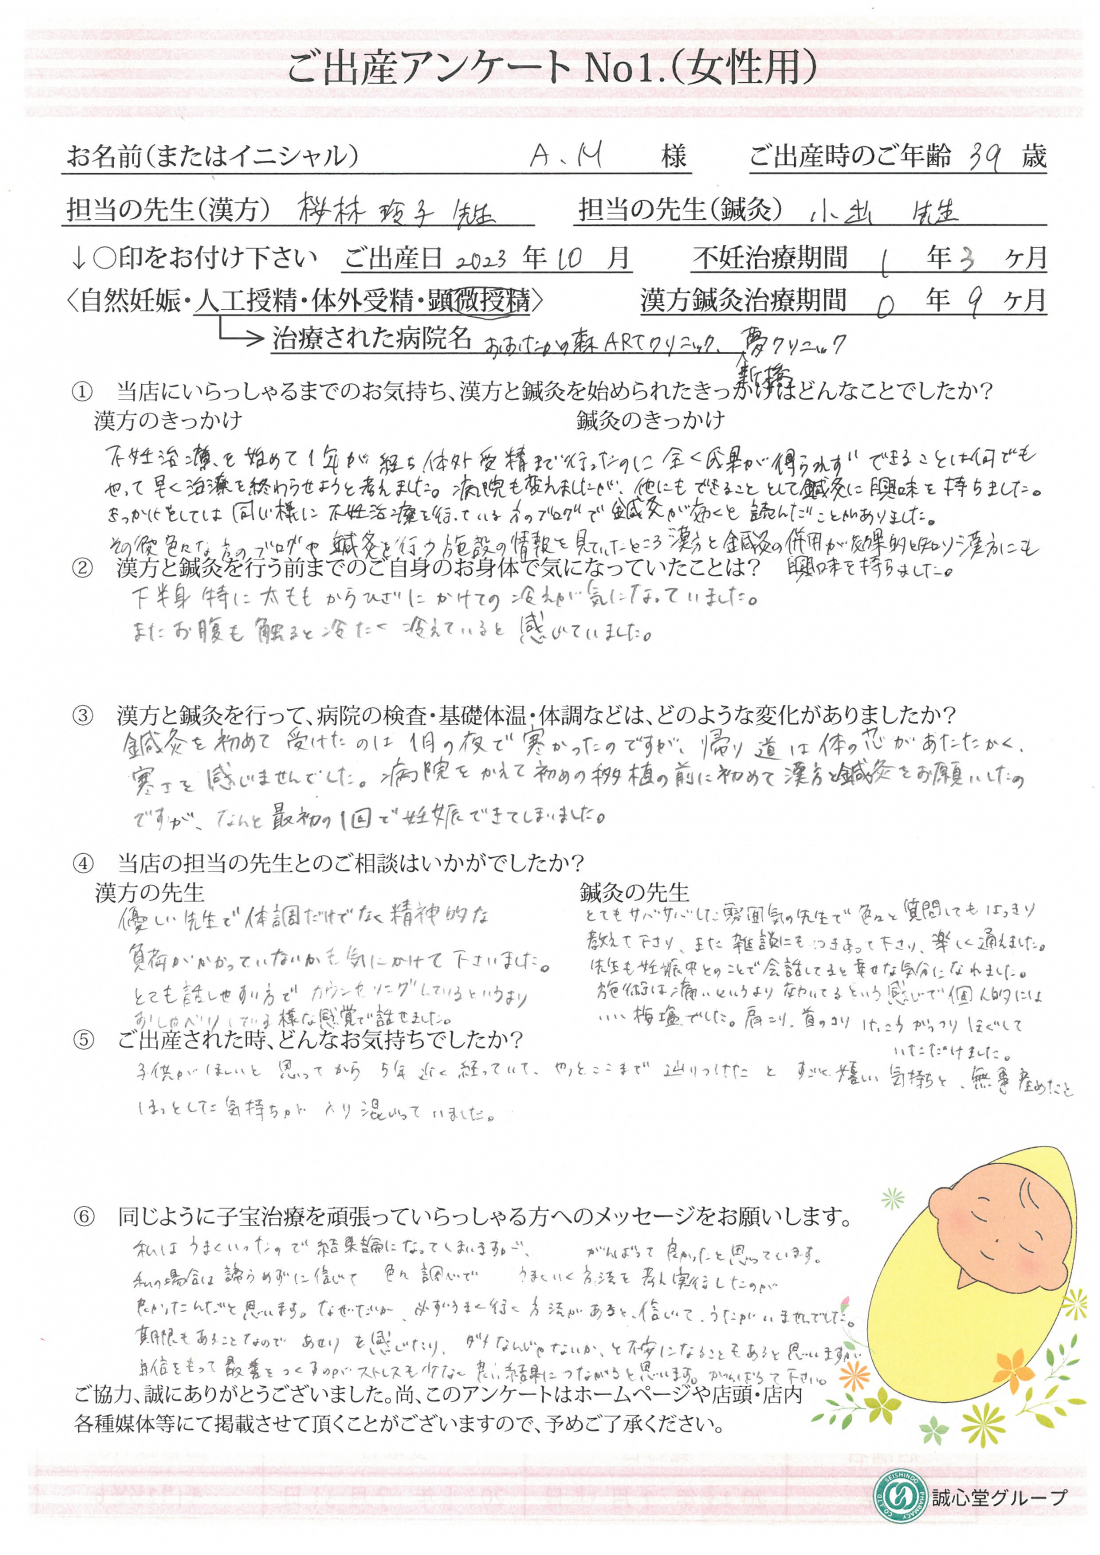 ご出産アンケート No1.(女性用)
お名前(またはイニシャル) A.M 様 ご出産時のご年齢 39 歳
担当の先生(漢方) 桜林 玲子 先生 担当の先生(鍼灸) 小出 先生
↓○印をお付け下さい ご出産日 2023 年 10 月 不妊治療期間 1 年 3 ヶ月
〈自然妊娠・人工授精・体外受精・顕微授精〉 漢方鍼灸治療期間 0 年 9 ヶ月
治療された病院名 おおたかの森ARTクリニック、夢クリニック
新橋
① 当店にいらっしゃるまでのお気持ち、漢方と鍼灸を始められたきっかけはどんなことでしたか?
漢方のきっかけ 鍼灸のきっかけ
不妊治療を始めて1年が経ち、体外受精まで行ったのに全く成果が得られず できることは何でも
やって早く治療を終わらせようと考えました。病院も変えましたが、他にもできることとして鍼灸に興味を持ちました。
きっかけとしては同じ様に不妊治療を行っている方のブログで鍼灸が効くと読んだことがありました。
その後色々な方のブログや鍼灸を行う施設の情報を見ていたところ漢方と鍼灸の併用が効果的と知り漢方にも
興味を持ちました。
② 漢方と鍼灸を行う前までのご自身のお身体で気になっていたことは?
下半身 特に太ももからひざにかけての冷えが気になっていました。
またお腹も触ると冷たく冷えていると感じていました。
③ 漢方と鍼灸を行って、病院の検査・基礎体温・体調などは、どのような変化がありましたか?
鍼灸を初めて受けたのは1月の夜で寒かったのですが、帰り道は体の芯があたたかく、
寒さを感じませんでした。病院をかえて初めの移植の前に初めて漢方と鍼灸をお願いしたの
ですが、なんと最初の1回で妊娠できてしまいました。
④ 当店の担当の先生とのご相談はいかがでしたか?
漢方の先生
優しい先生で体調だけでなく精神的な
負荷がかかっていないかも気にかけて下さいました。
とても話しやすい方でカウンセリングしているというより
おしゃべりしている様な感覚で話せました。
鍼灸の先生
とてもサバサバした雰囲気の先生で色々と質問してもはっきり
教えて下さり、また雑談にもつきあって下さり、楽しく通えました。
先生も妊娠中とのことで会話してると幸せな気分になれました。
施術は痛いというより 効いてるという感じで個人的には
いい塩梅でした。肩こり、首のこり けっこうがっつりほぐして
いただけました。
⑤ ご出産された時、どんなお気持ちでしたか?
子供がほしいと思ってから5年近く経っていて、やっとここまで辿りつけたとすごく嬉しい気持ちと、無事産めたと
ほっとした気持ちが入り混じっていました。
⑥ 同じように子宝治療を頑張っていらっしゃる方へのメッセージをお願いします。
私はうまくいったので結果論になってしまいますが、がんばって良かったと思っています。
私の場合は諦らめずに信じて 色々調べて うまくいく方法を考え実行したのが
良かったんだと思います。なぜだか、必ずうまく行く方法があると、信じて、うたがいませんでした。
期限もあることなので あせりを感じたり、ダメなんじゃないか、と不安になることもあると思いますが
自信をもって最善をつくすのがストレスも少なく良い結果につながると思います。がんばって下さい。
ご協力、誠にありがとうございました。尚、このアンケートはホームページや店頭・店内
各種媒体等にて掲載させて頂くことがございますので、予めご了承ください。
SEISHINDO PHARMACY CO.,LTD.
誠心堂グループ